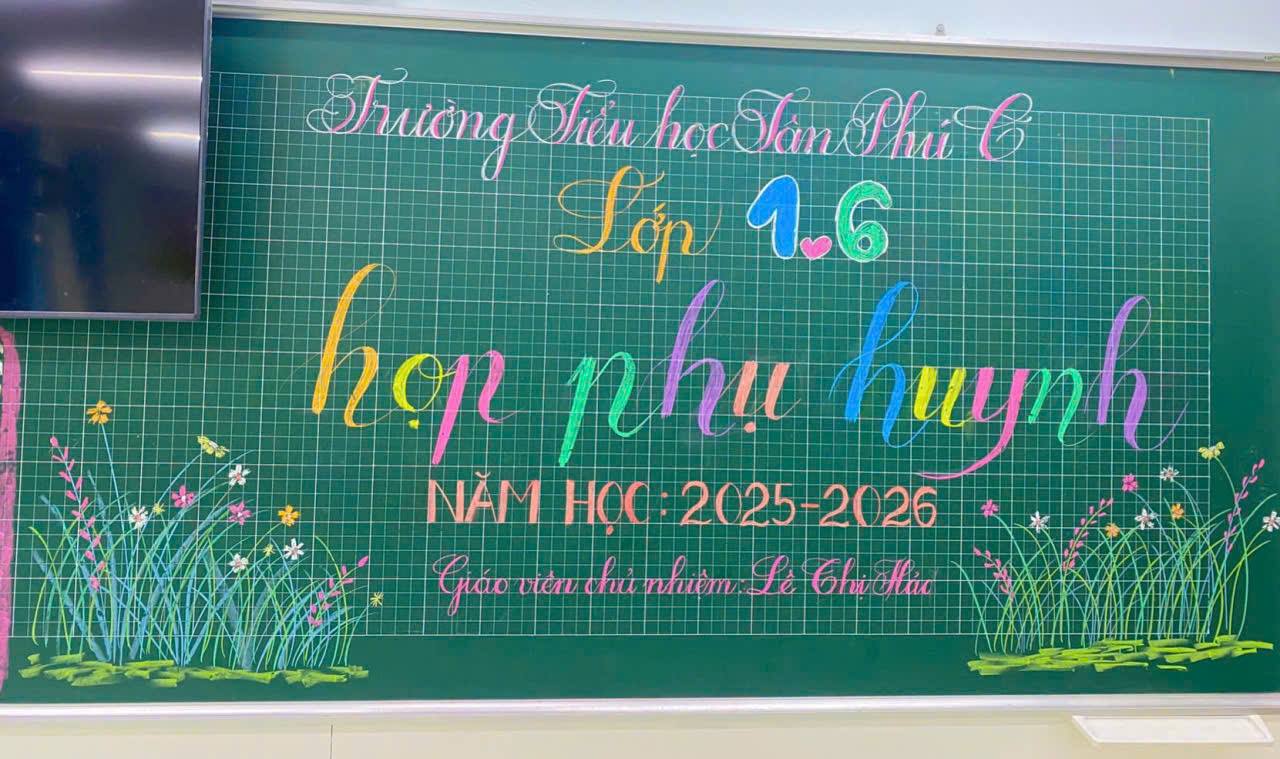 Trường Tiểu học Tân Phú C
Lớp 1.6
họp phụ huynh
NĂM HỌC: 2025-2026
Giáo viên chủ nhiệm: Lê Thị